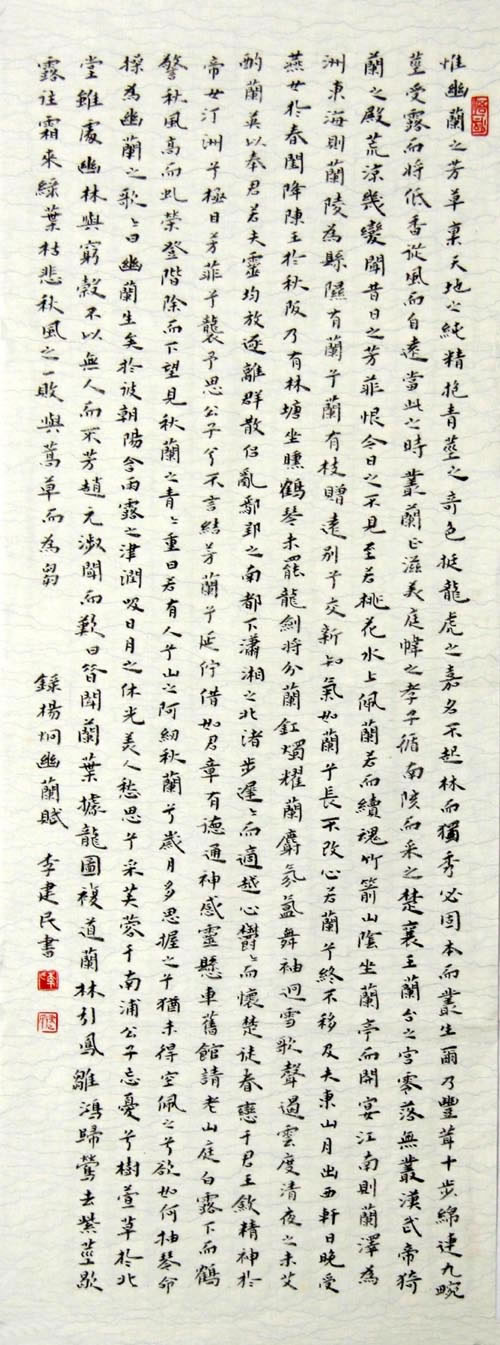 惟幽蘭之芳草稟天地之純精抱青莖之奇色挺龍虎之嘉名不起林而獨秀必固本而叢生爾乃豐茸十步綿連九畹
莖受露而將低香從風而自遠當此之時叢蘭正滋美庭幃之孝子循南陔而采之楚襄王蘭台之宮零落無叢漢武帝猗
蘭之殿荒涼幾變聞昔日之芳菲恨今日之不見至若桃花水上佩蘭若而續魂竹箭山陰坐蘭亭而開宴江南則蘭澤為
洲東海則蘭陵為縣隰有蘭兮蘭有枝贈遠別兮交新知氣如蘭兮長不改心若蘭兮終不移及夫東山月出西軒日晚受
燕女於春閨降陳王於秋阪乃有林塘坐曛鶴琴未罷龍劍將分蘭釭燭耀蘭麝氛氳舞袖迴雪歌聲遏雲度清夜之未艾
酌蘭英以奉君若夫靈均放逐離群散侶亂鄢郢之南都下瀟湘之北渚步遲〻而適越心鬱〻而懷楚徒眷戀于君王斂精神於
帝女汀洲兮極目芳菲兮襲予思公子兮不言結芳蘭兮延佇借如君章有德通神感靈懸車舊館請老山庭白露下而鶴
警秋風高而亂螢登階除而下望見秋蘭之青〻重曰若有人兮山之阿紉秋蘭兮歲月多思握之兮猶未得空佩之兮欲如何抽琴命
操為幽蘭之歌〻曰幽蘭生矣於彼朝陽含雨露之津潤吸日月之休光美人愁思兮采芙蓉于南浦公子忘憂兮樹萱草於北
堂雖處幽林與窮穀不以無人而不芳趙元淑聞而歎曰昔聞蘭葉據龍圖複道蘭林引鳳雛鴻歸鶯去紫莖歇
露往霜來綠葉枯悲秋風之一敗與蒿草而為芻
錄楊炯幽蘭賦 李建民書